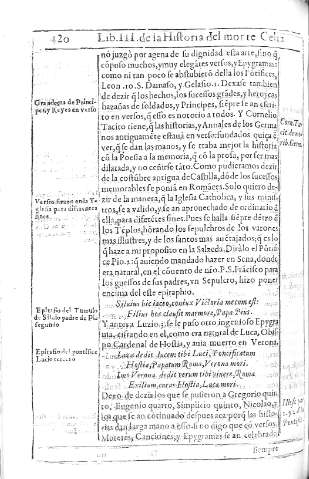 420 Lib. III. de la Historia del monte Celia
no juzgò por agena de su dignidad esta arte, sino q̃
cõpuso muchos, y muy elegãtes versos, y Epygramas:
como ni tan poco se abstubierõ della los Põtifices,
Leon .10. S. Damaso, y Gelasio .1. Dexase tambien
de dezir q̃ los hechos, los sucessos grãdes, y heroycas
hazañas de soldados, y Principes, siẽpre se an escri-
to en versos, q̃ esso es notorio a todos. Y Cornelio
Tacito tiene, q̃ las historias, y Annales de los Germa
nos antiguamẽte estauã en versos fundados quiça
ver, q̃ se dan las manos, y se traba mejor la historia
cõ la Poesia a la memoria, q̃ cõ la prosa, por ser mas
dilatada, y no ceñirse tãto. Como pudieramos dezir
de la costũbre antigua de Castilla, dõde los sucessos
memorables se poniã en Romãces. Solo quiero de-
zir de la manera, q̃ la Iglesia Catholica, y sus minis-
tros, se a valido, y se an aprouechado de
ella, para diferẽtes fines. Pues se halla siẽpre dẽtro q̃
los Tẽplos, hõrando los sepulcros de los varones
mas illustres, y de los santos mas auẽtajados; q̃ es lo
q̃ haze a mi proposito en la Salzeda. Diralo el Põtifi
ce Pio .2. q̃ auiendo mandado hazer en Sena, donde
era natural, en el conuento de nr̃o P. S. Frãcisco para
los guessos de sus padres, vn Sepulcro, hizo poner
encima del este epitaphio.
Siluius hic iaceo, coniux Victoria mecum est:
Filius hoc clausit marmore, Papa Pius.
Y antes a Lucio .3. se le puso otro ingenioso Epygra
ma, cifrando en el, como era natural de Luca, Obis-
po Cardenal de Hostia, y auia muerto en Verona.
Luca dedit lucem tibi Luci, Pontificatum
Hostia, Papatum Roma, Verona mori.
Imo Verona dedit verum tibi viuere, Roma
Exilium, curas Hostia, Luca mori.
Dexo de dezir los que se pusieron a Gregorio quin
to, Eugenio quarto, Simplicio quinto, Nicolao
los que se an continuado despues aca porq̃ las histo
rias dan larga mano a esso: ni no digo que cõ versos,
Motetes, Canciones, y Epygramas se an celebrado
Siempre
Grandeza de Princi-
pes y Reyes en verso
Corn. Tac.
Verso siruio en la Y-
glesia para diferentes
fines.
Epitafio del Tumulo
de Siluio padre de Pio
segundo
Epitafio del pontifice
Lucio tercero